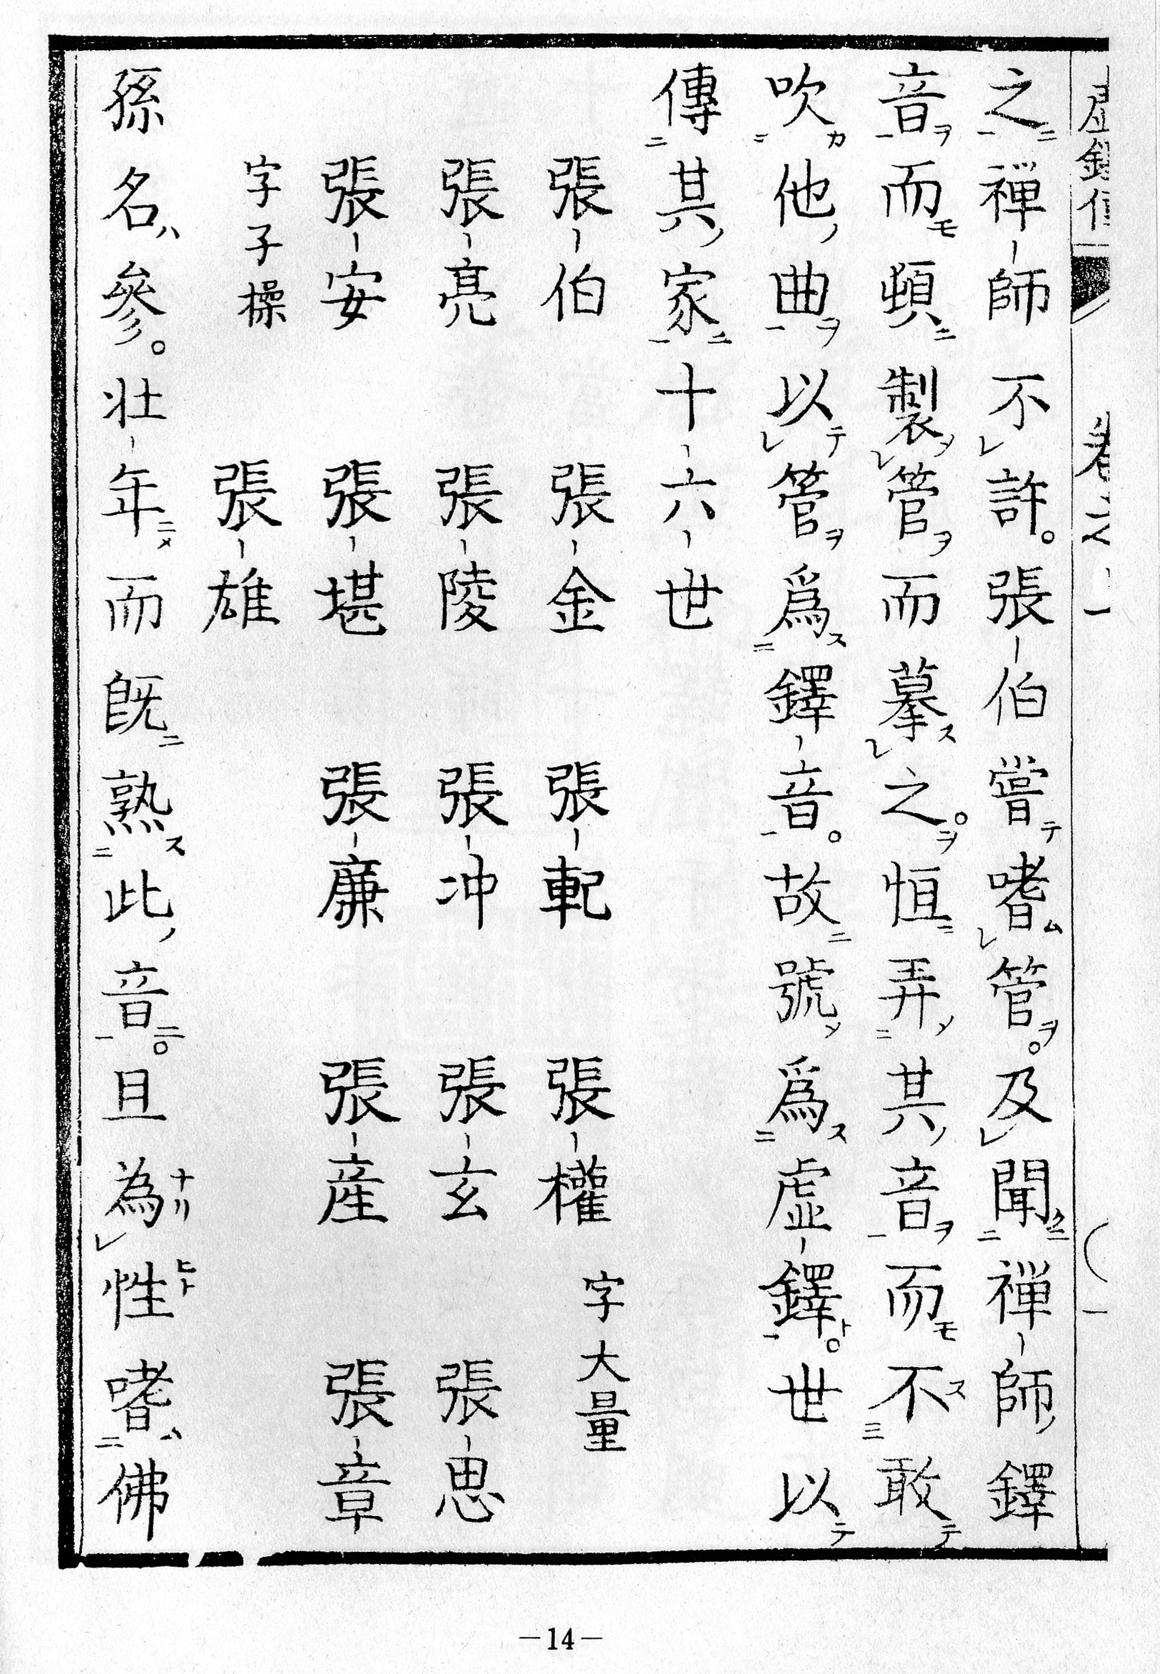 之禅師不許。張伯嘗嗜管。及聞禅師鐸
音而頓製管而摹之。恒弄其音而不敢
吹他曲以管爲鐸音。故號爲虚鐸。世以
傳其家十六世
張伯 張金 張範 張權 字大量
張亮 張陵 張冲 張玄 張思
張安 張堪 張廉 張産 張章
字子操 張雄
孫名參。壮年而既熟此音。且為性嗜佛
—14—